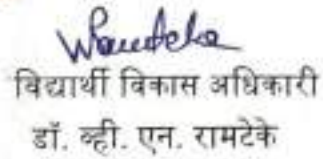 विद्यार्थी विकास अधिकारी
डॉ. व्ही. एन. रामटेके